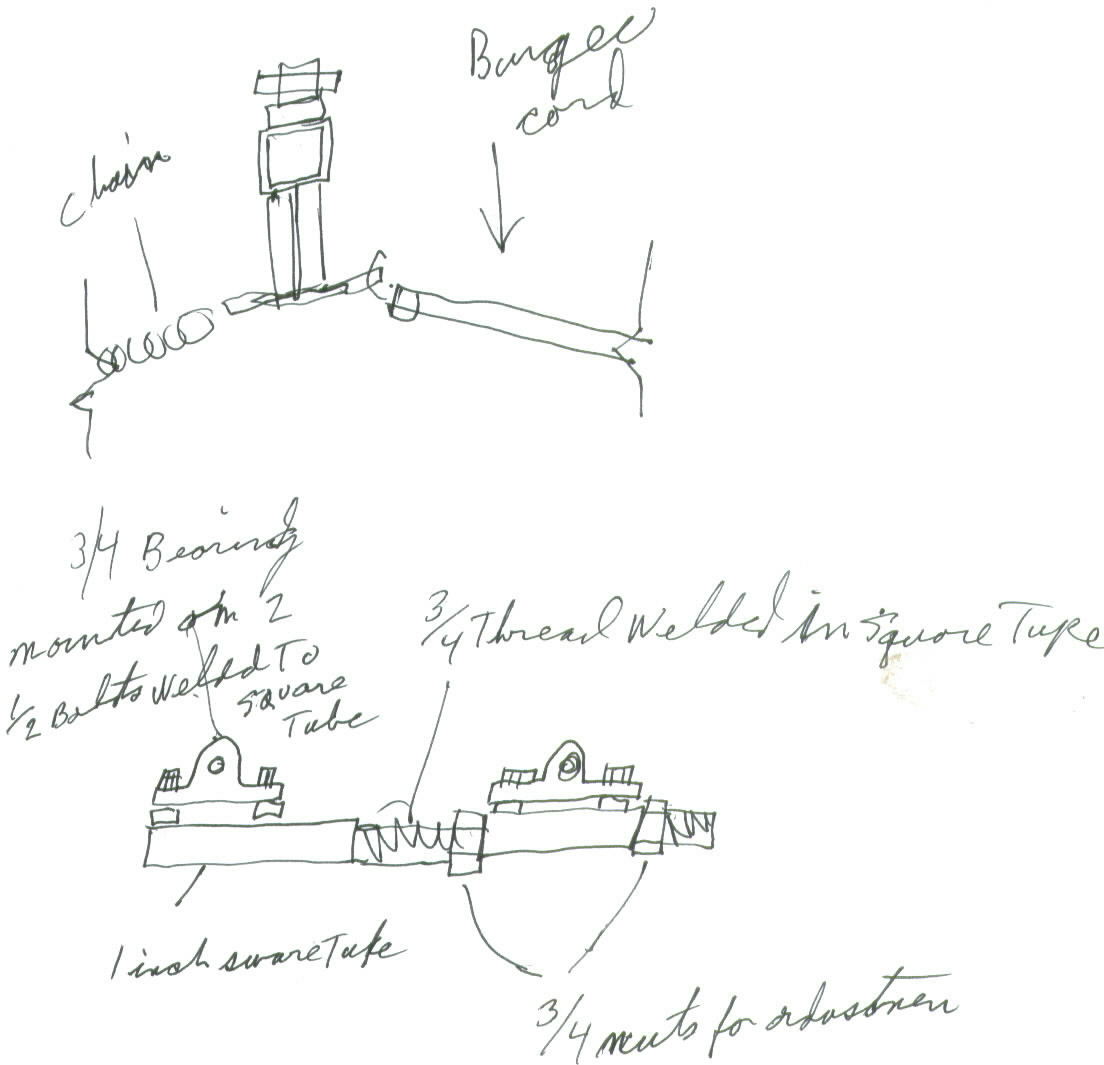 Bungee
cord
chain
3/4 Bearing
mounted on 2
1/2 Bolts Welded To
Square
Tube
3/4 Thread Welded in Square Tupe
1 inch swareTube
3/4 nuts for